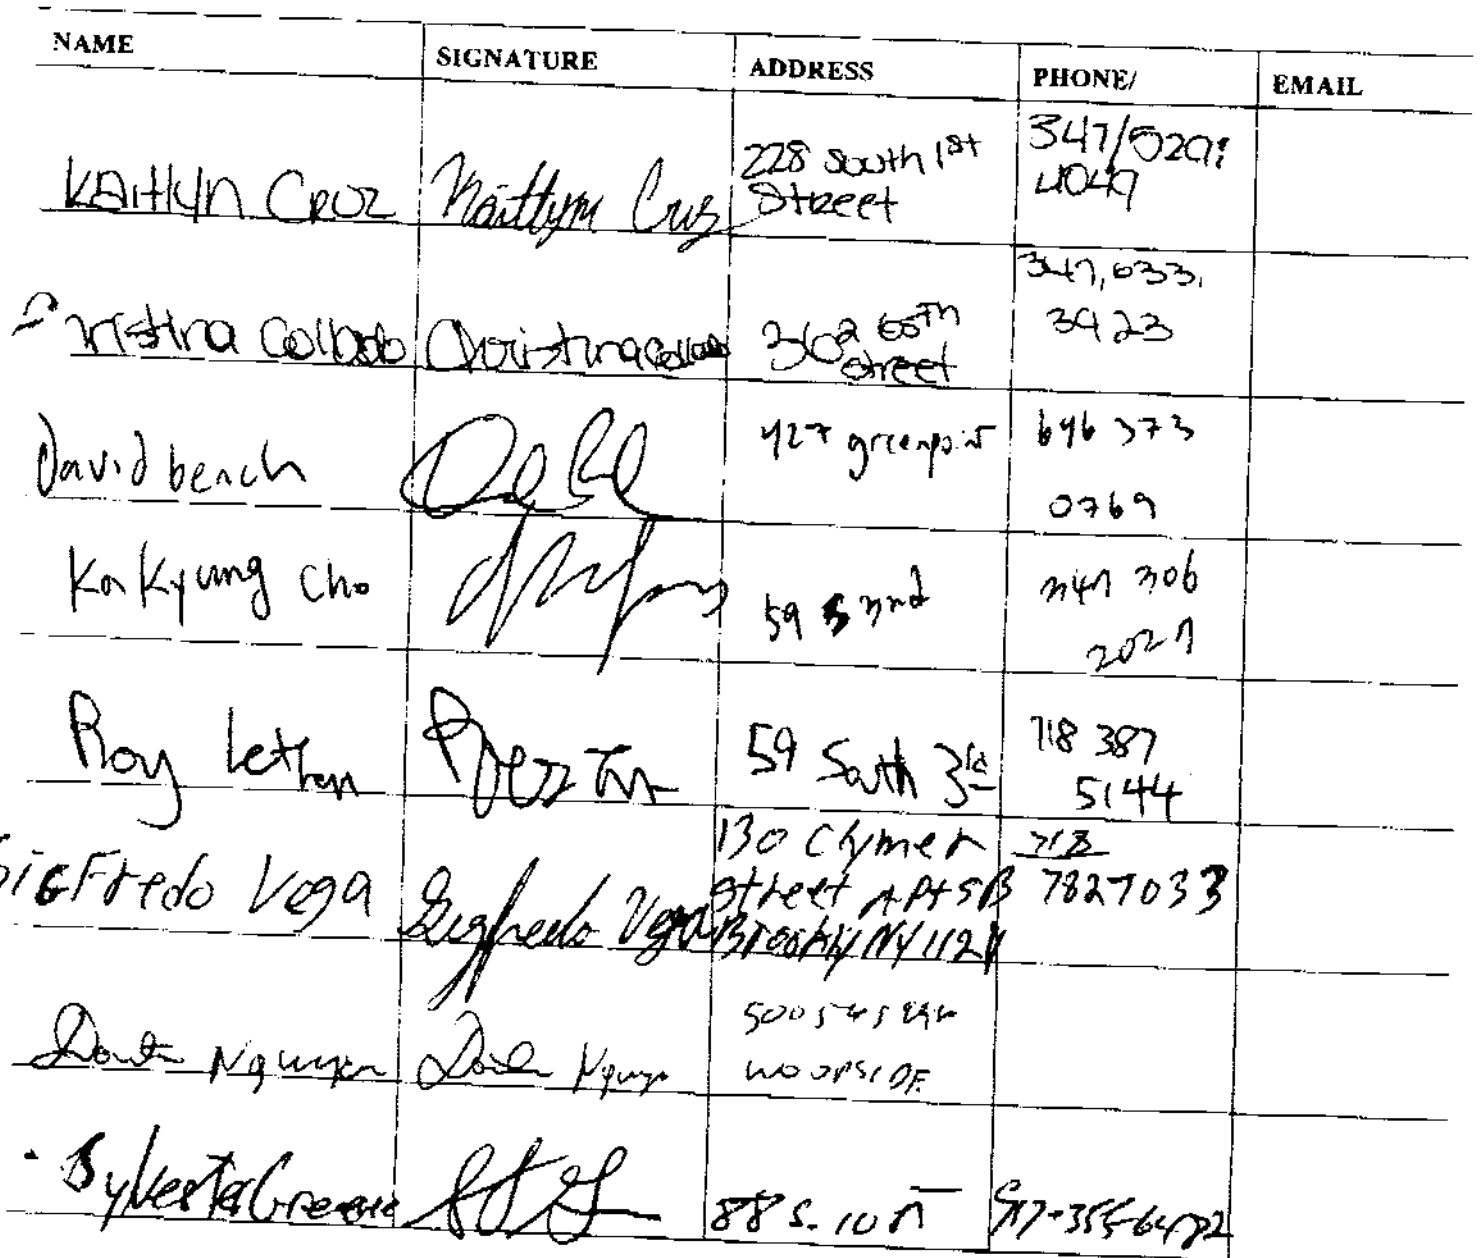 NAME SIGNATURE ADDRESS PHONE/ EMAIL
KAITLYN CRUZ Kaitlyn Cruz 228 South 1st Street 347/529: 4049
Christina Collado Christina Collado 362 60th Street 347,633, 3923
David bench 427 greenpoint 646 373 0769
Ka Kyung Cho 59 S 3rd 347 306 2027
Roy Lethen 59 South 3rd 718 387 5144
SIGFredo Vega Sigfredo Vega 130 Clymer Street APt 5B Brooklyn NY 11211 718 7827033
Nguyen WOODSIDE
Sylvester Greene 88 S. 10th